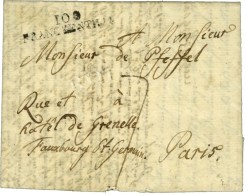 100
FRANCKENTHAL
Monsieur Monsieur
de Pfeffel
Rue et à
hotel de Grenelle
Fauxbourg St. Germain.
Paris.